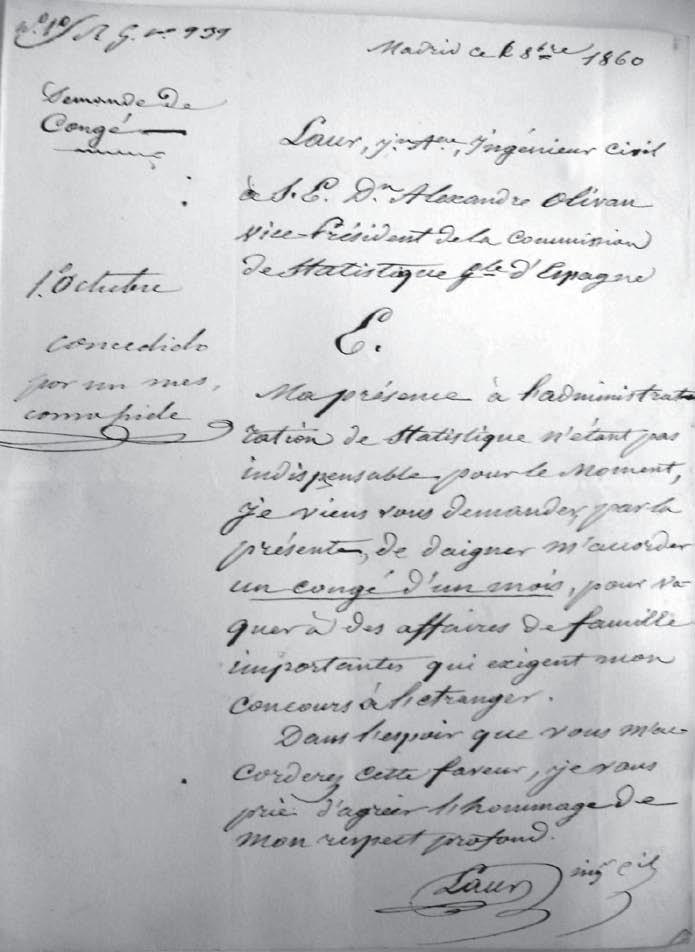 R. G. nº 939
Madrid ce 1 8bre 1860
Demande de
Congé
Laur, Jn Ane, Ingénieur civil
à S. E. Dn Alexandre Olivan
Vice-Président de la Commission
de Statistique gle d'Espagne
1º Octubre
concedido
por un mes,
como pide
E.
Ma présence à l'administrat
ration de Statistique n'étant pas
indispensable pour le Moment,
Je viens vous demander, par la
présente, de daigner m'accorder
un congé d'un mois, pour va-
quer à des affaires de famille
importantes qui exigent mon
concours à l'etranger.
Dans l'espoir que vous m'ac-
corderez cette faveur, je vous
prie d'agréer l'hommage de
mon respect profond.
Laur ing civil